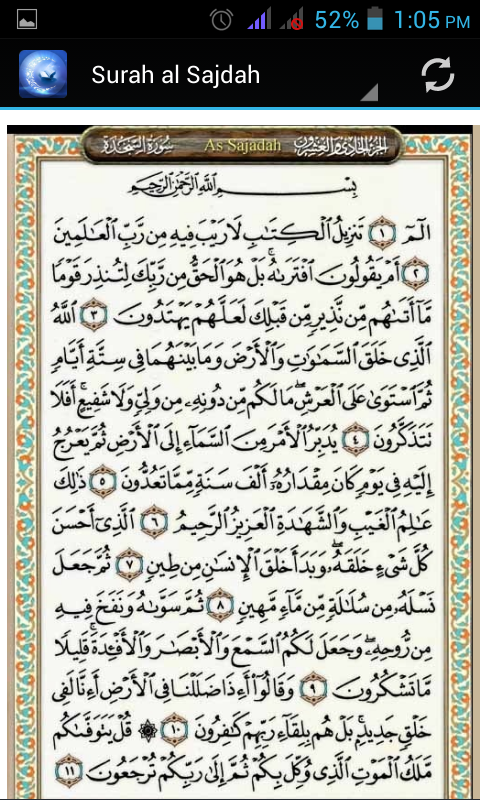 52% 1:05 PM
Surah al Sajdah
سُورَةُ السَّجْدَةِ As Sajadah الجزء الحادي والعشرون
بِسْمِ اللَّهِ الرَّحْمَٰنِ الرَّحِيمِ
الٓمٓ ١ تَنزِيلُ ٱلْكِتَٰبِ لَا رَيْبَ فِيهِ مِن رَّبِّ ٱلْعَٰلَمِينَ
٢ أَمْ يَقُولُونَ ٱفْتَرَىٰهُ ۚ بَلْ هُوَ ٱلْحَقُّ مِن رَّبِّكَ لِتُنذِرَ قَوْمًا
مَّآ أَتَىٰهُم مِّن نَّذِيرٍ مِّن قَبْلِكَ لَعَلَّهُمْ يَهْتَدُونَ ٣ ٱللَّهُ
ٱلَّذِى خَلَقَ ٱلسَّمَٰوَٰتِ وَٱلْأَرْضَ وَمَا بَيْنَهُمَا فِى سِتَّةِ أَيَّامٍ
ثُمَّ ٱسْتَوَىٰ عَلَى ٱلْعَرْشِ ۖ مَا لَكُم مِّن دُونِهِۦ مِن وَلِىٍّ وَلَا شَفِيعٍ ۚ أَفَلَا
تَتَذَكَّرُونَ ٤ يُدَبِّرُ ٱلْأَمْرَ مِنَ ٱلسَّمَآءِ إِلَى ٱلْأَرْضِ ثُمَّ يَعْرُجُ
إِلَيْهِ فِى يَوْمٍ كَانَ مِقْدَارُهُۥٓ أَلْفَ سَنَةٍ مِّمَّا تَعُدُّونَ ٥ ذَٰلِكَ
عَٰلِمُ ٱلْغَيْبِ وَٱلشَّهَٰدَةِ ٱلْعَزِيزُ ٱلرَّحِيمُ ٦ ٱلَّذِىٓ أَحْسَنَ
كُلَّ شَىْءٍ خَلَقَهُۥ ۖ وَبَدَأَ خَلْقَ ٱلْإِنسَٰنِ مِن طِينٍ ٧ ثُمَّ جَعَلَ
نَسْلَهُۥ مِن سُلَٰلَةٍ مِّن مَّآءٍ مَّهِينٍ ٨ ثُمَّ سَوَّىٰهُ وَنَفَخَ فِيهِ
مِن رُّوحِهِۦ ۖ وَجَعَلَ لَكُمُ ٱلسَّمْعَ وَٱلْأَبْصَٰرَ وَٱلْأَفْـِٔدَةَ ۚ قَلِيلًا
مَّا تَشْكُرُونَ ٩ وَقَالُوٓا۟ أَءِذَا ضَلَلْنَا فِى ٱلْأَرْضِ أَءِنَّا لَفِى
خَلْقٍ جَدِيدٍۭ ۚ بَلْ هُم بِلِقَآءِ رَبِّهِمْ كَٰفِرُونَ ١٠ ۞ قُلْ يَتَوَفَّىٰكُم
مَّلَكُ ٱلْمَوْتِ ٱلَّذِى وُكِّلَ بِكُمْ ثُمَّ إِلَىٰ رَبِّكُمْ تُرْجَعُونَ ١١